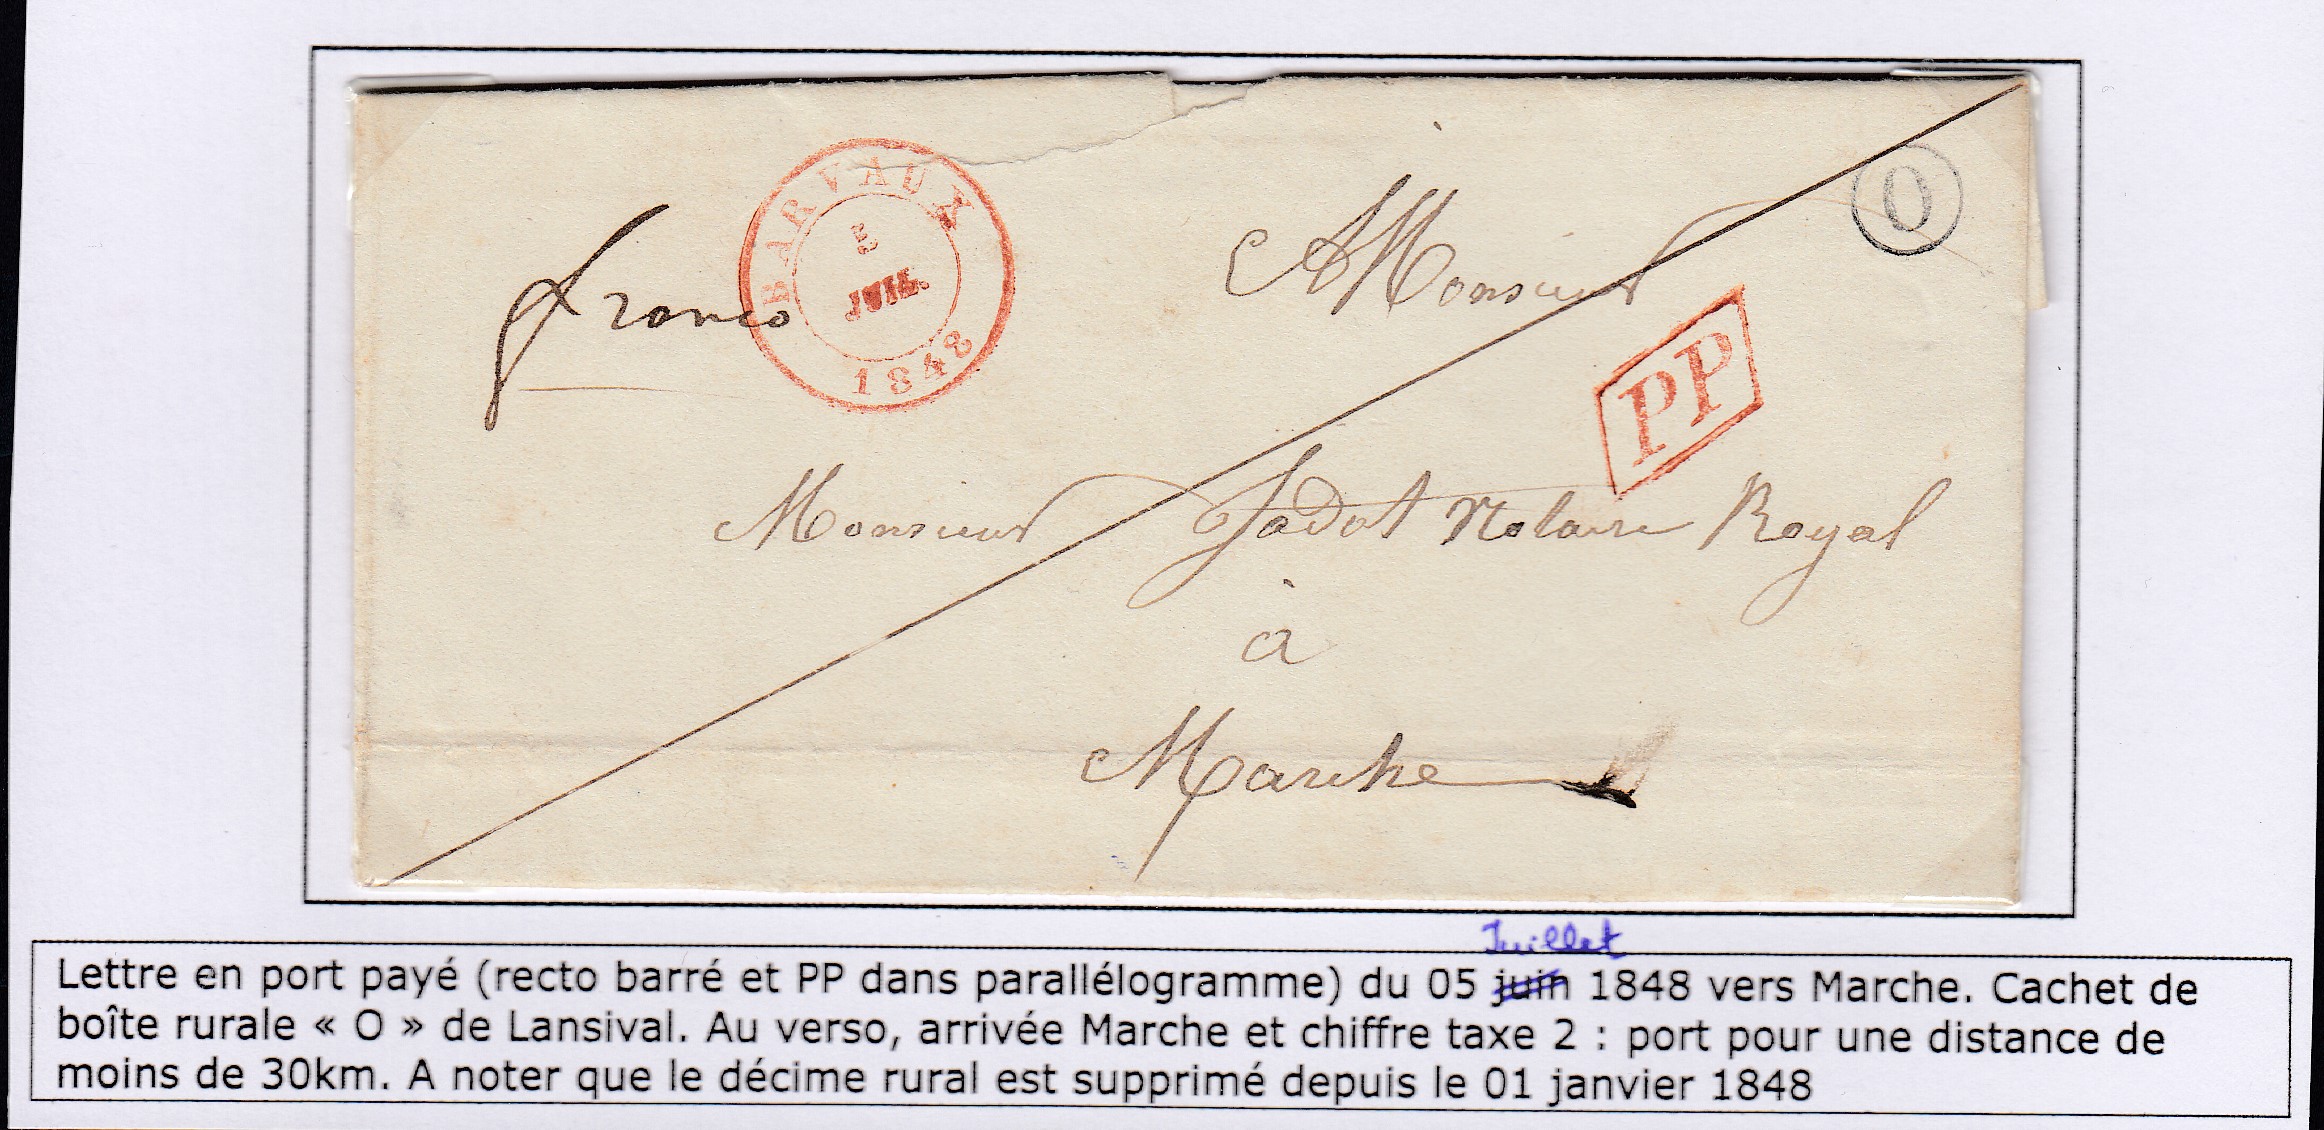 BARVAUX
5
JUIL.
1848
O
franco
A Monsieur
PP
Monsieur Jadot Notaire Royal
à
Marche
Juillet
Lettre en port payé (recto barré et PP dans parallélogramme) du 05 juin 1848 vers Marche. Cachet de
boîte rurale « O » de Lansival. Au verso, arrivée Marche et chiffre taxe 2 : port pour une distance de
moins de 30km. A noter que le décime rural est supprimé depuis le 01 janvier 1848